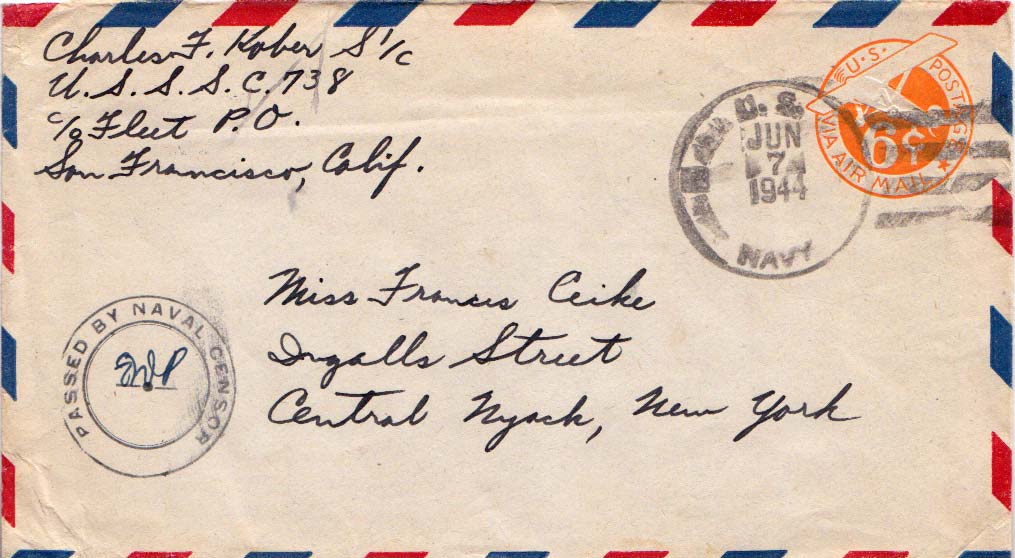 Charles F. Kober S 1/c
U. S. S. S. C. 738
c/o Fleet P. O.
San Francisco, Calif.
U. S.
JUN
7
1944
NAVY
U. S. POSTAGE
6¢
VIA AIR MAIL
Miss Francis Ceike
Ingalls Street
Central Nyack, New York
PASSED BY NAVAL CENSOR